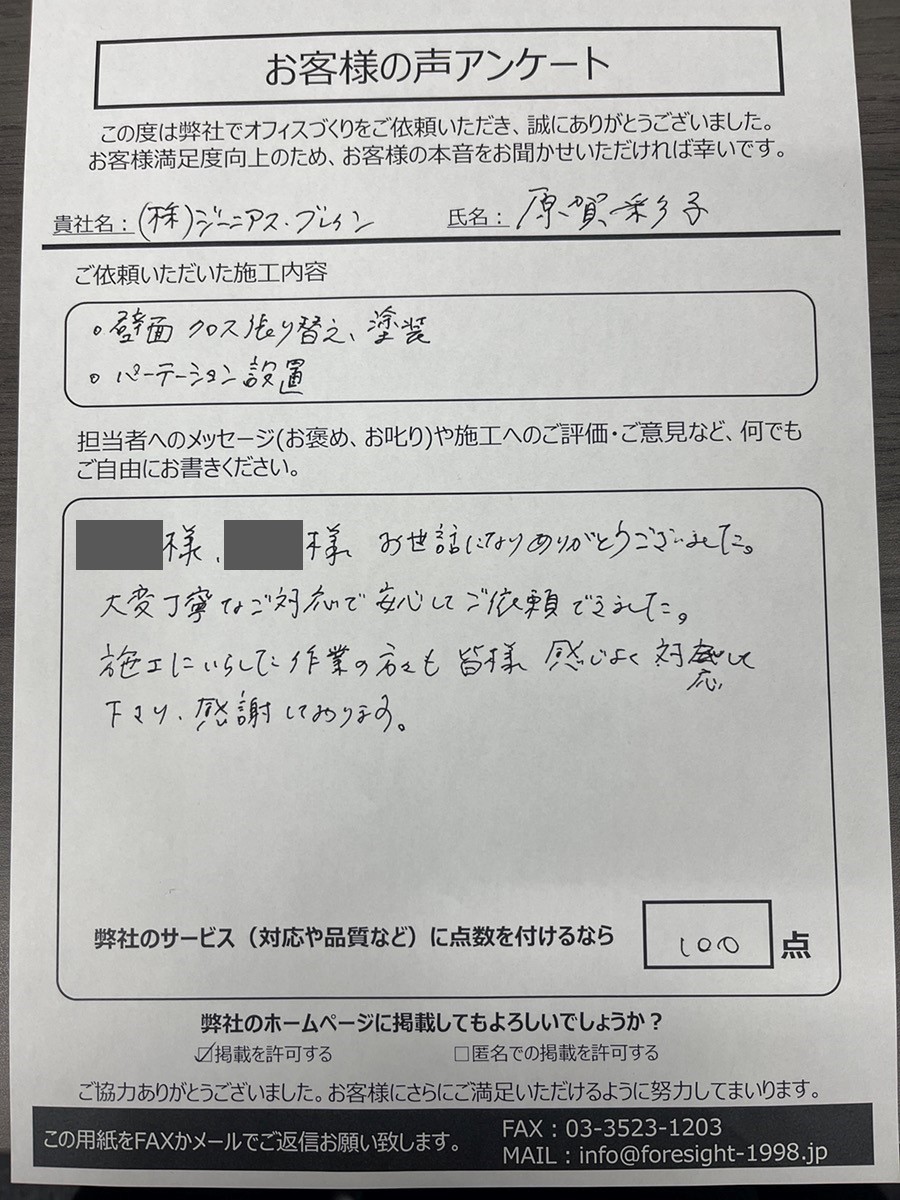 お客様の声アンケート
この度は弊社でオフィスづくりをご依頼いただき、誠にありがとうございました。
お客様満足度向上のため、お客様の本音をお聞かせいただければ幸いです。
貴社名：(株)ジーニアス・ブレイン 氏名：原賀彩子
ご依頼いただいた施工内容
。壁面クロス張り替え、塗装
。パーテーション設置
担当者へのメッセージ(お褒め、お叱り)や施工へのご評価・ご意見など、何でも
ご自由にお書きください。
様、様 お世話になりありがとうございました。
大変丁寧なご対応で安心してご依頼できました。
施工にいらした作業の方々も皆様感じよく対応して
下さり、感謝しております。
弊社のサービス（対応や品質など）に点数を付けるなら 100 点
弊社のホームページに掲載してもよろしいでしょうか？
☑掲載を許可する □匿名での掲載を許可する
ご協力ありがとうございました。お客様にさらにご満足いただけるように努力してまいります。
この用紙をFAXかメールでご返信お願い致します。
FAX：03-3523-1203
MAIL：info@foresight-1998.jp